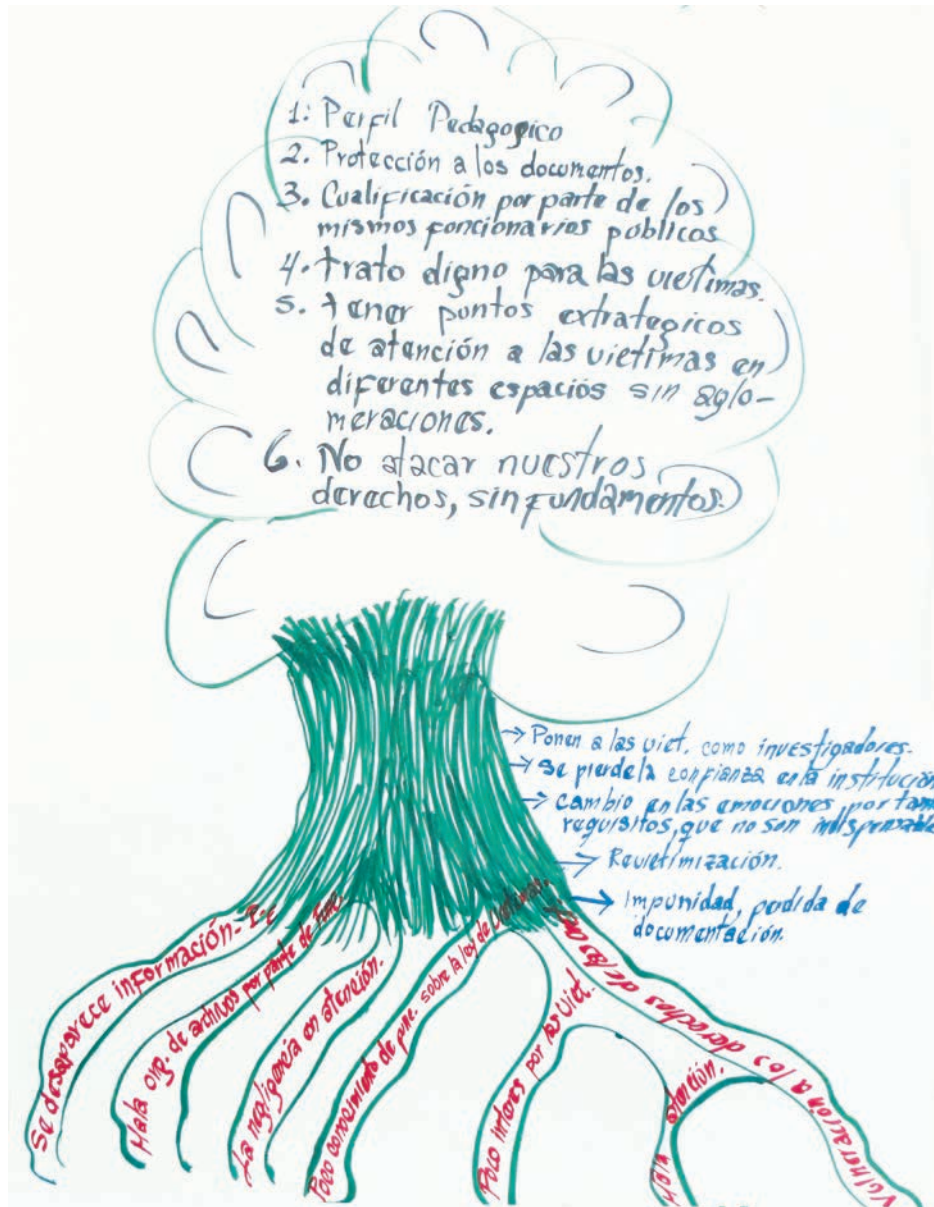 1: Perfil Pedagogico
2. Protección a los documentos.
3. Cualificación por parte de los
mismos foncionarios públicos
4. trato digno para las victimas.
5. tener puntos extrategicos
de atención a las victimas en
diferentes espacios sin aglo-
meraciones.
6. No atacar nuestros
derechos, sin fundamentos.
→ Ponen a las vict. como investigadores.
→ Se pierde la confianza en la institución
→ cambio en las emociones por tan
requisitos, que no son indispensable
→ Revictimización.
→ Impunidad, perdida de
documentación.
Se desaparece información-
Mala org. de archivos por parte de Func.
La negligencia en atención.
Poco conocimiento de func. sobre la ley de victimas.
Poco interes por las vict.
Mala atención.
Vulneración a los derechos de las